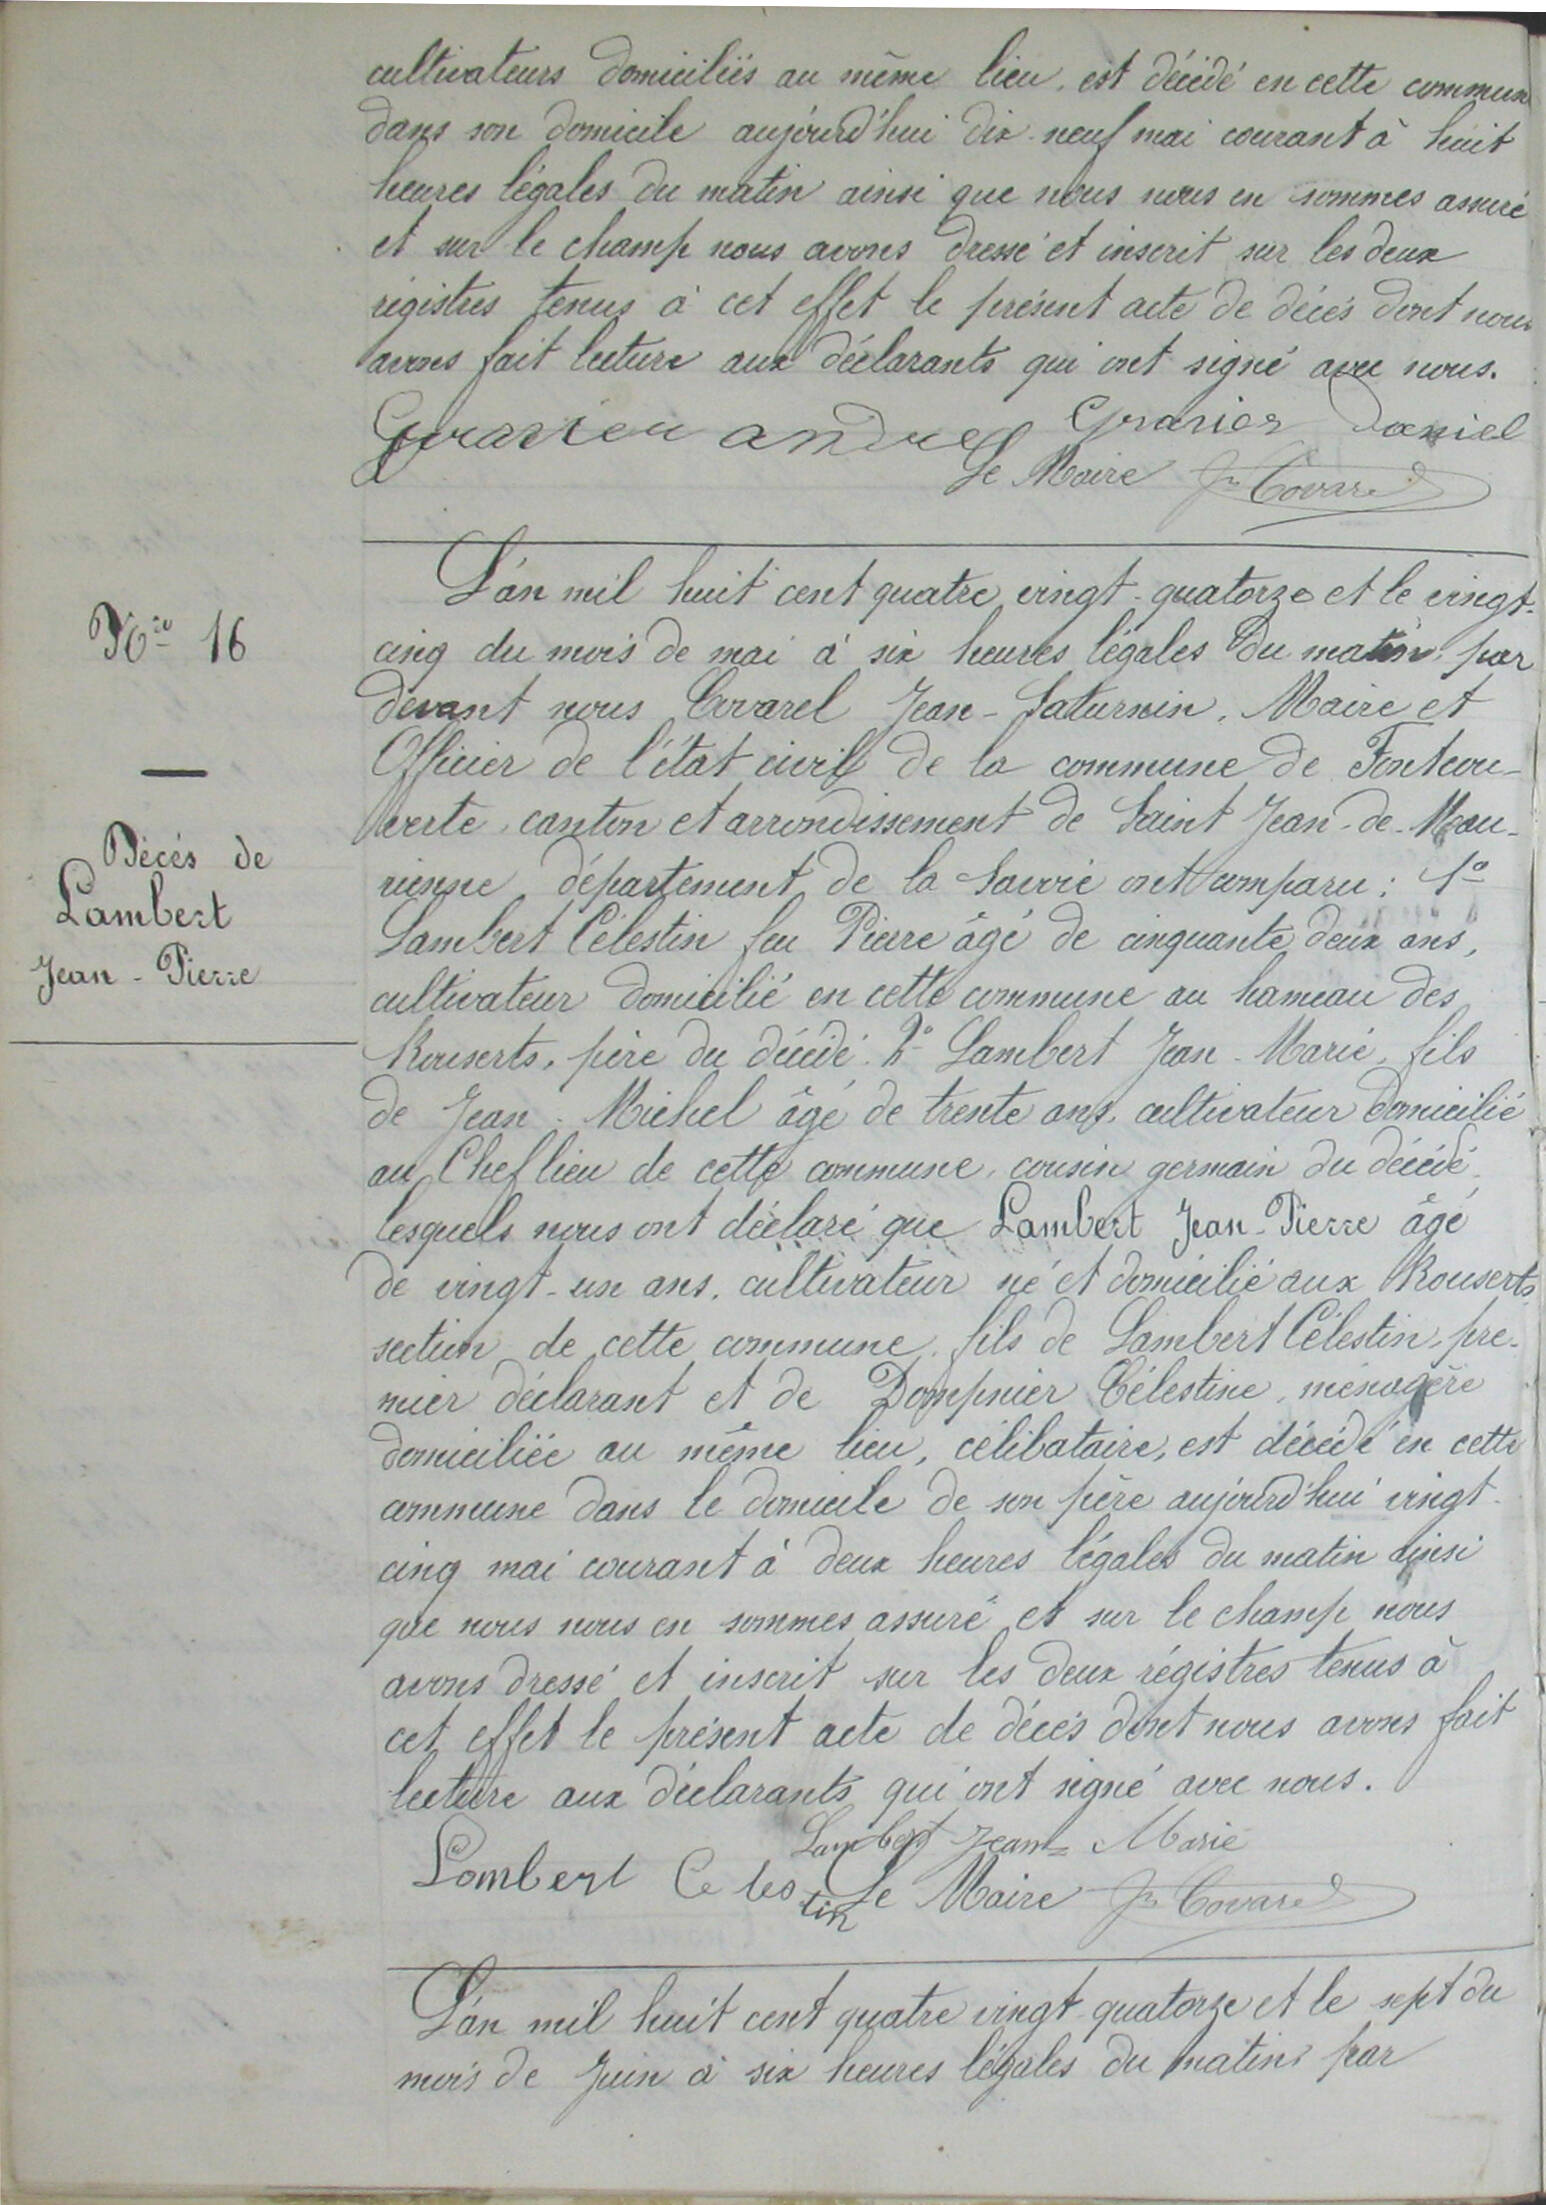 cultivateurs domiciliés au même lieu, est décédé en cette commune
dans son domicile aujourd'hui dix-neuf mai courant à huit
heures légales du matin ainsi que nous nous en sommes assuré
et sur le champ nous avons dressé et inscrit sur les deux
régistres tenus à cet effet le présent acte de décès dont nous
avons fait lecture aux déclarants qui ont signé avec nous.
andre Daniel
Le Maire Jn Covarel
L'an mil huit cent quatre vingt-quatorze et le vingt-
Nro 16
cinq du mois de mai à six heures légales du matin, par
devant nous Covarel Jean-Saturnin, Maire et
Officier de l'état civil de la commune de Fontcou-
verte, canton et arrondissement de Saint Jean-de-Mau-
rienne, département de la Savoie ont comparu: 1°
Décès de
Lambert
Jean-Pierre
Lambert Célestin feu Pierre âgé de cinquante deux ans,
cultivateur domicilié en cette commune au hameau des
Rouserts, père du décédé. 2° Lambert Jean-Marie, fils
de Jean-Michel âgé de trente ans, cultivateur domicilié
au Chef lieu de cette commune, cousin germain du décédé,
lesquels nous ont déclaré que Lambert Jean-Pierre âgé
de vingt-un ans, cultivateur né et domicilié aux Rouserts,
section de cette commune, fils de Lambert Célestin, pre-
mier déclarant et de Dompnier Célestine, ménagère
domiciliée au même lieu, célibataire, est décédé en cette
commune dans le domicile de son père aujourd'hui vingt-
cinq mai courant à deux heures légales du matin ainsi
que nous nous en sommes assuré et sur le champ nous
avons dressé et inscrit sur les deux régistres tenus à
cet effet le présent acte de décès dont nous avons fait
lecture aux déclarants qui ont signé avec nous.
Lambert Jean-Marie
Lambert Celes
tin
Le Maire Jn Covarel
L'an mil huit cent quatre vingt-quatorze et le sept du
mois de Juin à six heures légales du matin, par